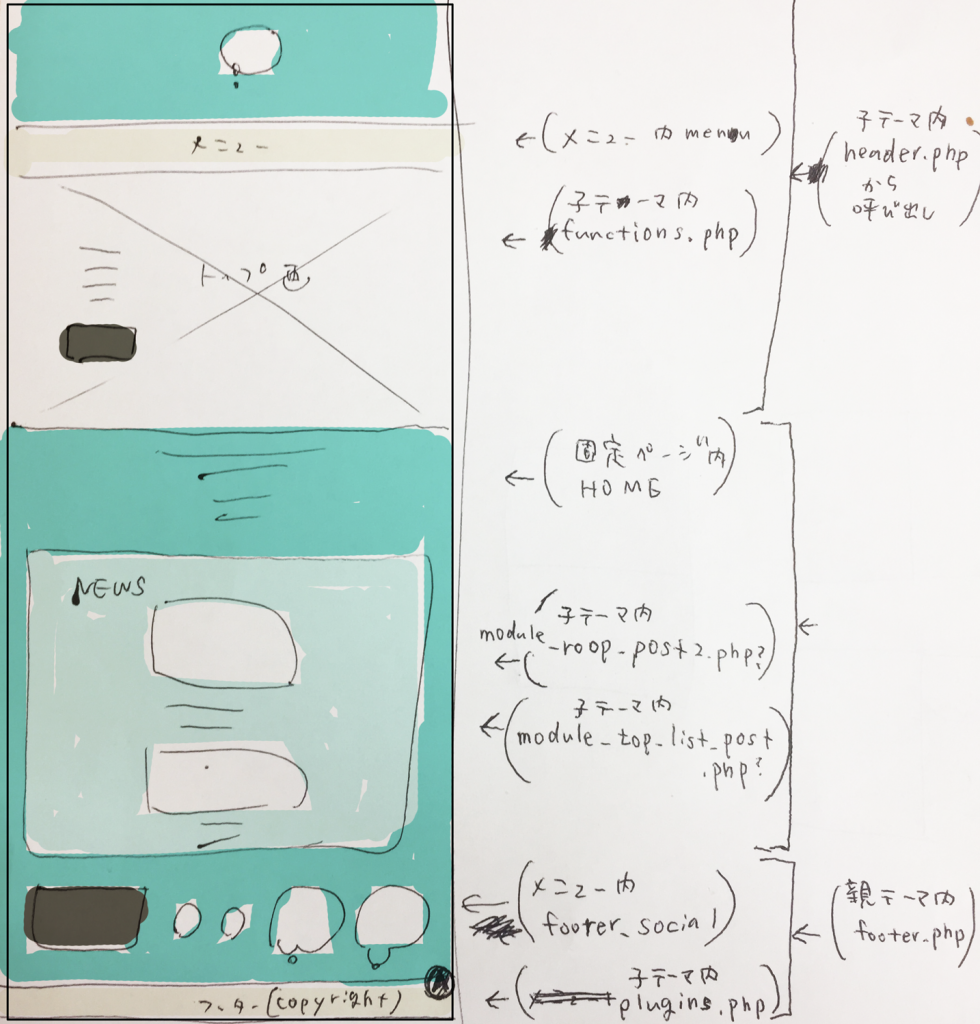 メニュー
トップ画
NEWS
フッター(copyright)
←(メニュー内 menu)
(子テーマ内
← functions.php)
←(固定ページ内
HOME)
子テーマ内
module
_roop_post2.php?
←(
←(子テーマ内
module_top_list_post
.php?)
←(メニュー内
footer_social)
子テーマ内
←( plugins.php)
子テーマ内
←(header.php
から
呼び出し)
←
←(親テーマ内
footer.php)